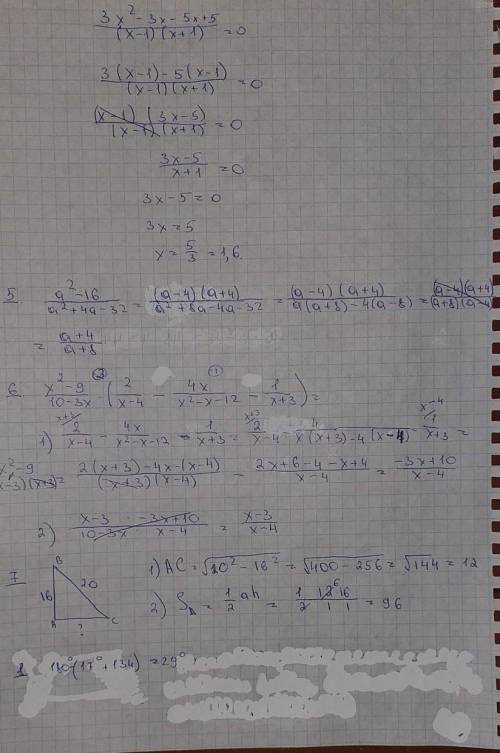 3x² - 3x - 5x + 5 / (x-1)(x+1) = 0
3(x-1) - 5(x-1) / (x-1)(x+1) = 0
(x-1)(3x-5) / (x-1)(x+1) = 0
3x-5 / x+1 = 0
3x-5 = 0
3x = 5
x = 5/3 = 1,6.
5. a²-16 / a²+4a-32 = (a-4)(a+4) / a²+8a-4a-32 = (a-4)(a+4) / a(a+8)-4(a-8) = (a-4)(a+4) / (a+8)(a-4)
= a+4 / a+8
6. x²-9 / 10-3x ② · (2 / x-4 - 4x / x²-x-12 ① - 1 / x+3) =
1) x+3/ 2 / x-4 - 4x / x²-x-12 = 1 / x+3 = x+3/ 2 / x-4 - 4 / x(x+3)-4(x-4) x-4/ 1 / x+3 =
x²-9 / (x-3)(x+3) = 2(x+3)-4x-(x-4) / (x+3)(x-4) - 2x+6-4-x+4 / x-4 = -3x+10 / x-4
2) x-3 · -3x+10 / 10-3x · x-4 = x-3 / x-4
7 B 16 20 ? C 1) AC = √20²-16² = √400-256 = √144 = 12
2) S = 1/2 ah = 1 12 6 16 / 2 1 1 = 96
180°-(17°+134) = 29°